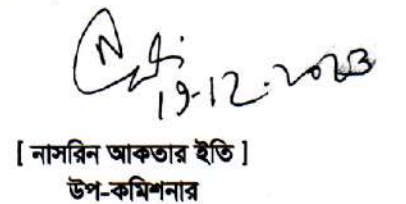 19-12-2023
[ নাসরিন আকতার ইতি ]
উপ-কমিশনার